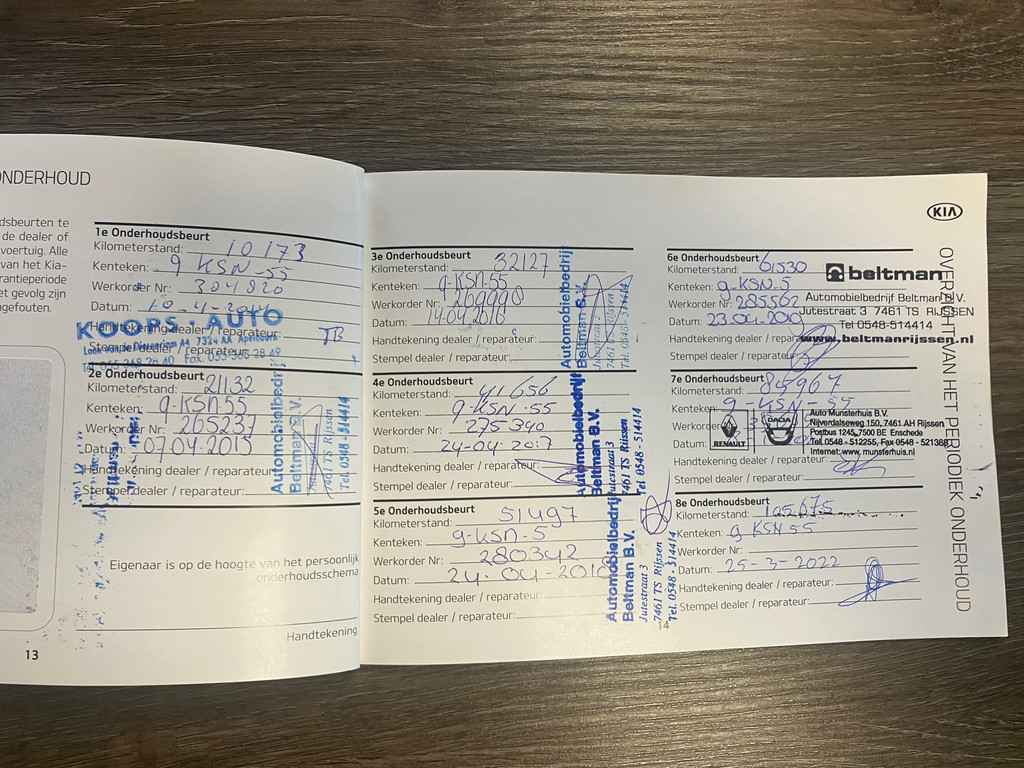 ONDERHOUD
dsbeurten te
de dealer of
voertuig. Alle
van het Kia-
rantieperiode
et gevolg zijn
ngefouten.
13
1e Onderhoudsbeurt
Kilometerstand: 10173
Kenteken: 9 KSN-55
Werkorder Nr: 304820
Datum: 10-4-2014
Handtekening dealer / reparateur: TB
Stempel dealer / reparateur:
KOOPS AUTO
2e Onderhoudsbeurt
Kilometerstand: 21132
Kenteken: 9-KSN55
Werkorder Nr: 265237
Datum: 07.04.2015
Handtekening dealer / reparateur:
Stempel dealer / reparateur:
Automobielbedrij
Beltman B.V.
7461 TS Rijssen
Tel. 0548-514414
Eigenaar is op de hoogte van het persoonlijk
onderhoudsschema
Handtekening
3e Onderhoudsbeurt
Kilometerstand: 32127
Kenteken: 9-KSN-55
Werkorder Nr: 269998
Datum:
Handtekening dealer / reparateur:
Stempel dealer / reparateur:
Automobielbedrij
Beltman B.V.
4e Onderhoudsbeurt
Kilometerstand: 41656
Kenteken: 9-KSN-55
Werkorder Nr: 275340
Datum: 24-04-2017
Handtekening dealer / reparateur:
Stempel dealer / reparateur:
Automobielbedrij
Beltman B.V.
Jutestraat 3
7461 TS Rijssen
Tel. 0548-514414
5e Onderhoudsbeurt
Kilometerstand: 51497
Kenteken: 9-KSN-5
Werkorder Nr: 280342
Datum: 24-04-2018
Handtekening dealer / reparateur:
Stempel dealer / reparateur:
Automobielbedrij
Beltman B.V.
Jutestraat 3
7461 TS Rijssen
Tel. 0548-514414
14
KIA
6e Onderhoudsbeurt
Kilometerstand: 61530
Kenteken: 9-KSN-5
Werkorder Nr: 285562
Datum: 23.04.2019
Handtekening dealer / reparateur:
Stempel dealer / reparateur:
beltman
Automobielbedrijf Beltman B.V.
Jutestraat 3 7461 TS RIJSSEN
Tel 0548-514414
www.beltmanrijssen.nl
7e Onderhoudsbeurt
Kilometerstand: 85967
Kenteken: 9-KSN-55
Werkorder
Datum:
Handtekening dealer / reparateur:
Stempel dealer / reparateur:
RENAULT
DACIA
Auto Munsterhuis B.V.
Nijverdalseweg 150, 7461 AH Rijssen
Postbus 1245, 7500 BE Enschede
Tel. 0548 - 512255, Fax 0548 - 521388
Internet: www.munsterhuis.nl
8e Onderhoudsbeurt
Kilometerstand: 105675
Kenteken: 9 KSN 55
Werkorder Nr:
Datum: 25-3-2022
Handtekening dealer / reparateur:
Stempel dealer / reparateur:
OVERZICHT VAN HET PERIODIEK ONDERHOUD